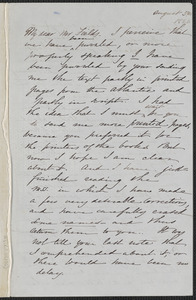 August
My dear Mr Fields, I perceive that
we have puzzled, or more
properly speaking, I have
been puzzled — by your sending
me the text partly in printed
pages from the Atlantics and
partly in script. I had
the idea that I must, to you
to send me more printed pages,
because you preferred it for
the printers of the book. But
now I hope I am clear
about it, and I have just
finished reading the
M.S. in which I have made
a few very desirable corrections,
and have carefully erased
some names and then
return them to you. It was
not till your last note that
I comprehended about it or
there would have been no
delay.